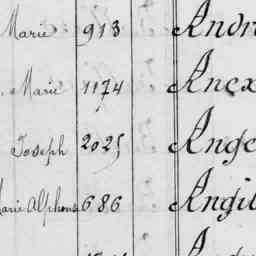 Marie 913 Andr
Marie 1174 Anex
Joseph 2025 Ange
Marie Alphonse 686 Angil